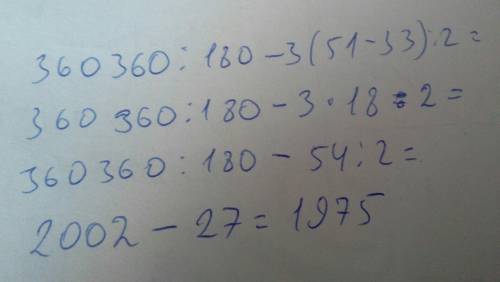 360360:180-3(51-33):2=
360 360:180-3·18:2=
360360:180-54:2=
2002-27=1975